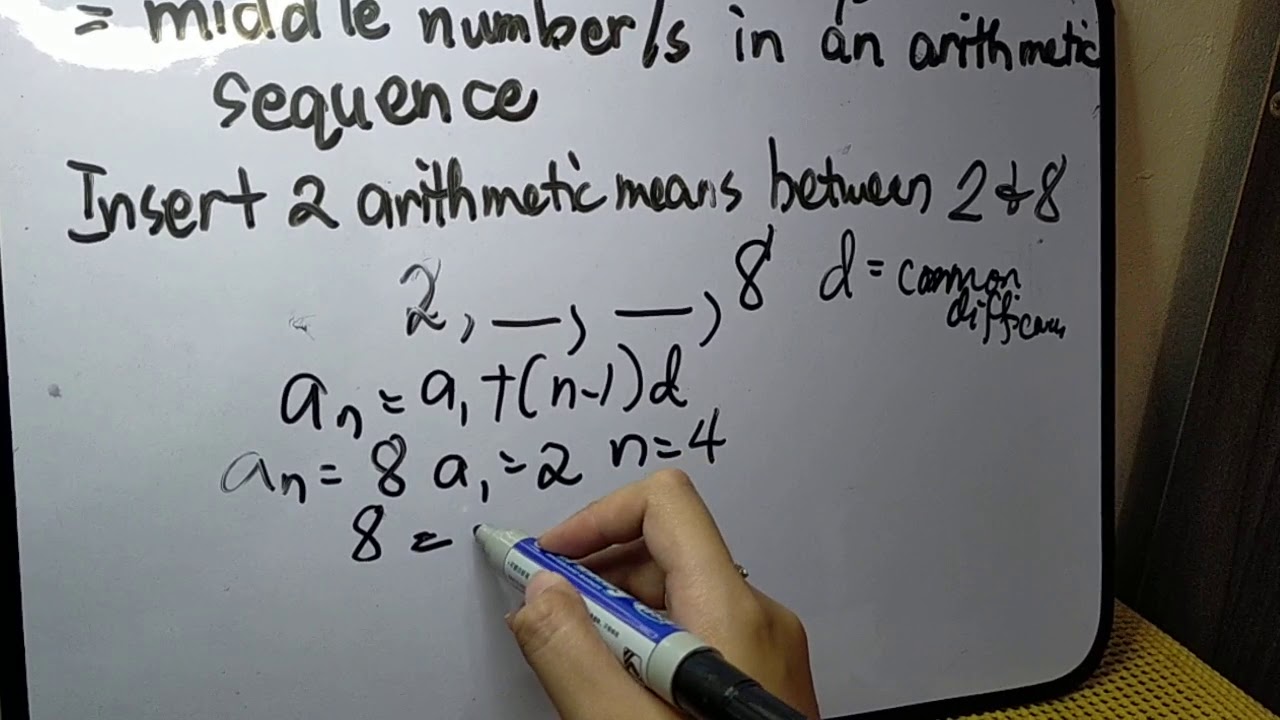 = middle number/s in an arithmetic
sequence
Insert 2 arithmetic means between 2 & 8
2, __, __, 8 d = common
an = a1 + (n-1)d
an = 8 a1 = 2 n = 4
8 =